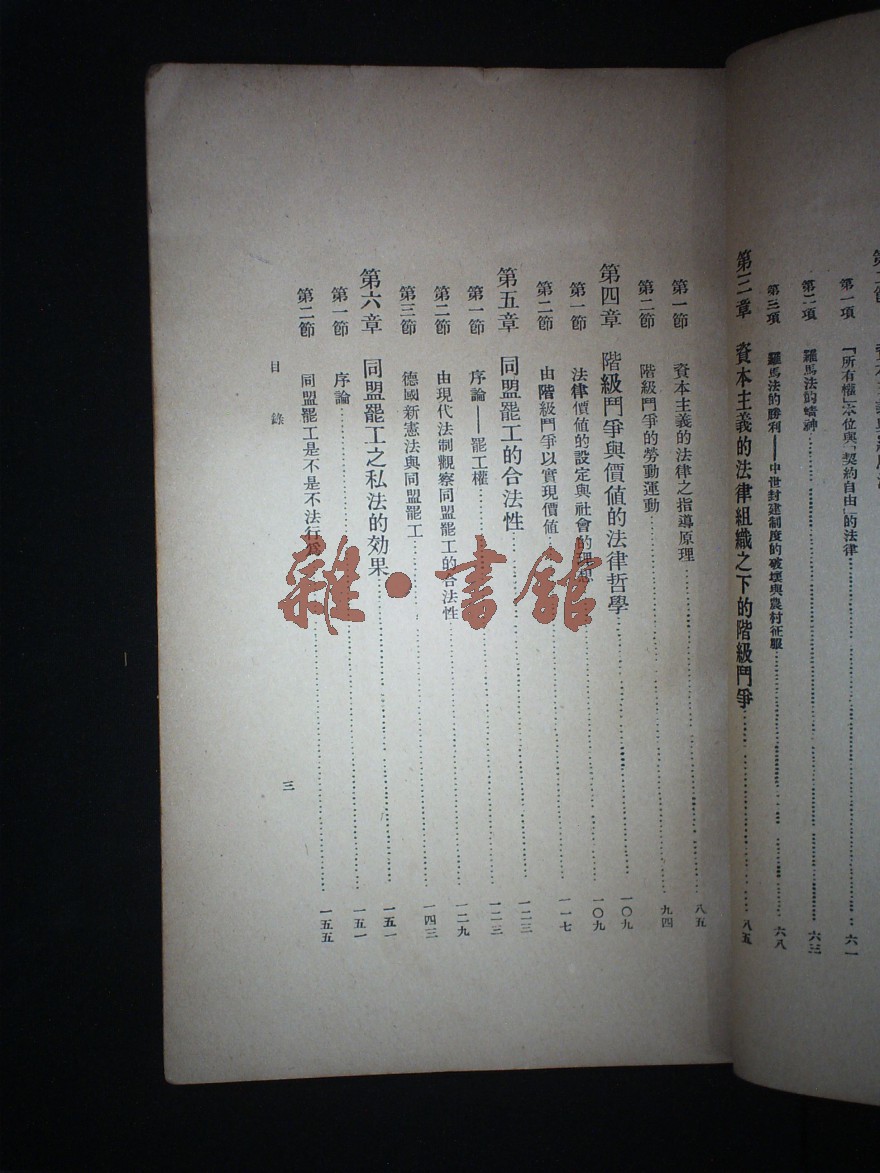 第一項 「所有權」本位與「契約自由」的法律 六一
第二項 羅馬法的精神 六三
第三項 羅馬法的勝利——中世封建制度的破壞與農村征服 六八
第三章 資本主義的法律組織之下的階級鬥爭 八五
第一節 資本主義的法律之指導原理 八五
第二節 階級鬥爭的勞動運動 九四
第四章 階級鬥爭與價値的法律哲學 一〇九
第一節 法律價値的設定與社會的理想 一〇九
第二節 由階級鬥爭以實現價値 一一七
第五章 同盟罷工的合法性 一二三
第一節 序論——罷工權 一二三
第二節 由現代法制觀察同盟罷工的合法性 一二九
第三節 德國新憲法與同盟罷工 一四三
第六章 同盟罷工之私法的效果 一五一
第一節 序論 一五一
第二節 同盟罷工是不是不法行為 一五五
目錄 三
雜·書館